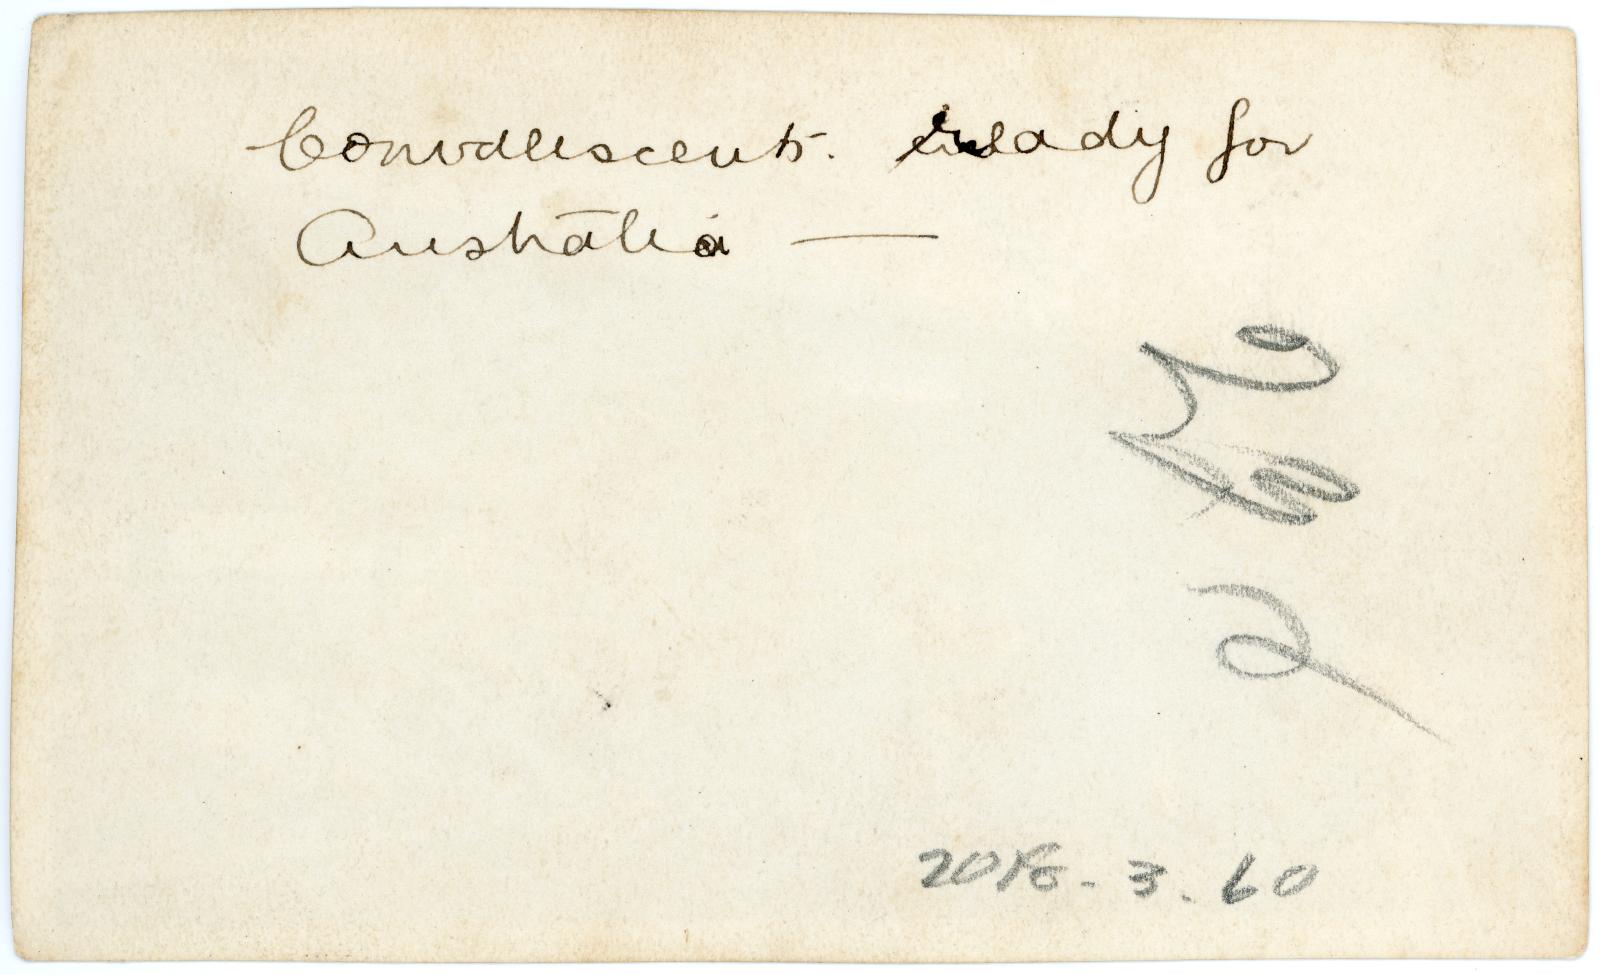 Convalescents. ready for
Australia —
2018.3.60